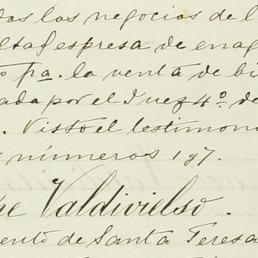 los negocios de l
espresa de enag
pa. la venta de bi
ada por el Juez 4º. de
. Visto el testimon
números 1 y 7.
Valdivielso.
ento de Santa Teresa